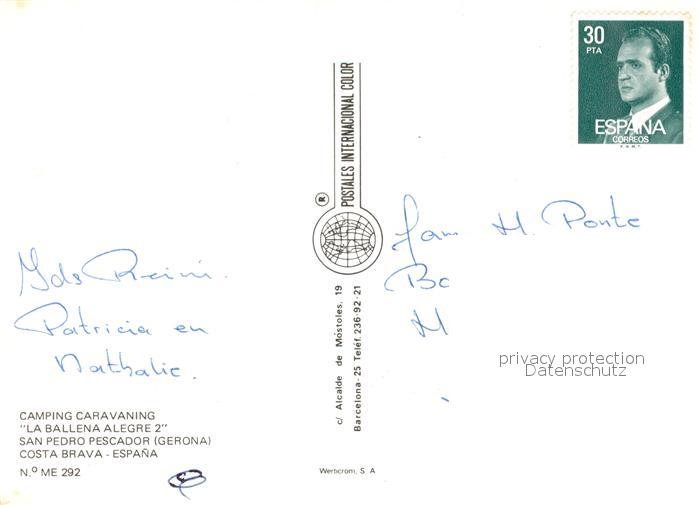 30
PTA
ESPAÑA
CORREOS
F.N.M.T.
POSTALES INTERNACIONAL COLOR
®
c/ Alcalde de Móstoles, 19
Barcelona-25 Teléf. 236-92-21
Fam H. Ponte
Bc
H
privacy protection
Datenschutz
Patricia en
Nathalie.
CAMPING CARAVANING
"LA BALLENA ALEGRE 2"
SAN PEDRO PESCADOR (GERONA)
COSTA BRAVA - ESPAÑA
N.º ME 292
Werticrom, S. A